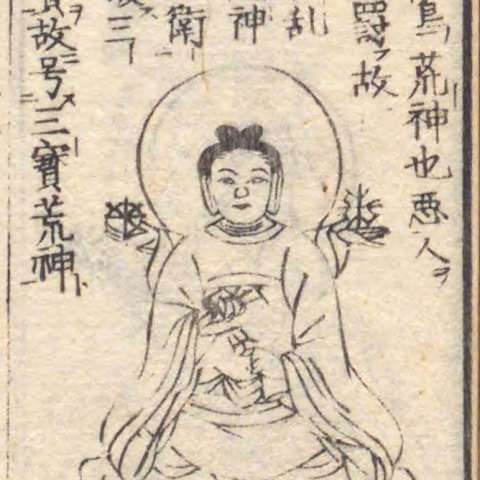 荒神也悪人ヲ
罸故
乱
神
衛
三
故ニ号ス三寶荒神ト